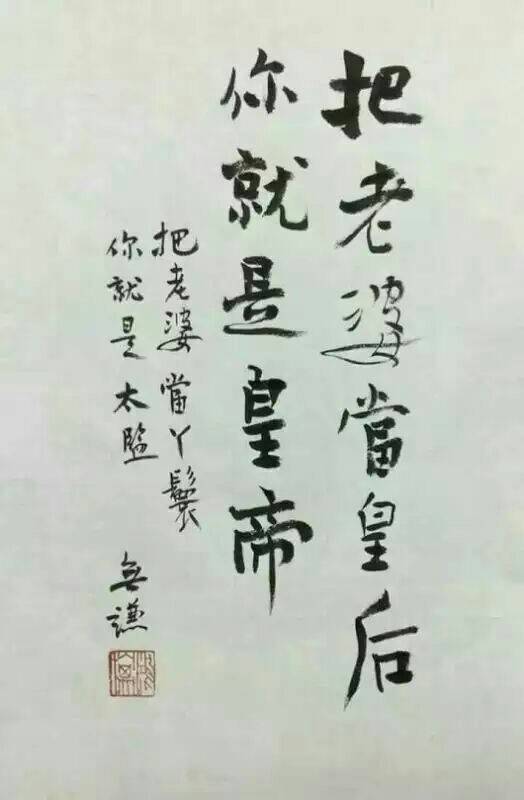 把老婆當皇后
你就是皇帝
把老婆當丫鬟
你就是太監
無謙